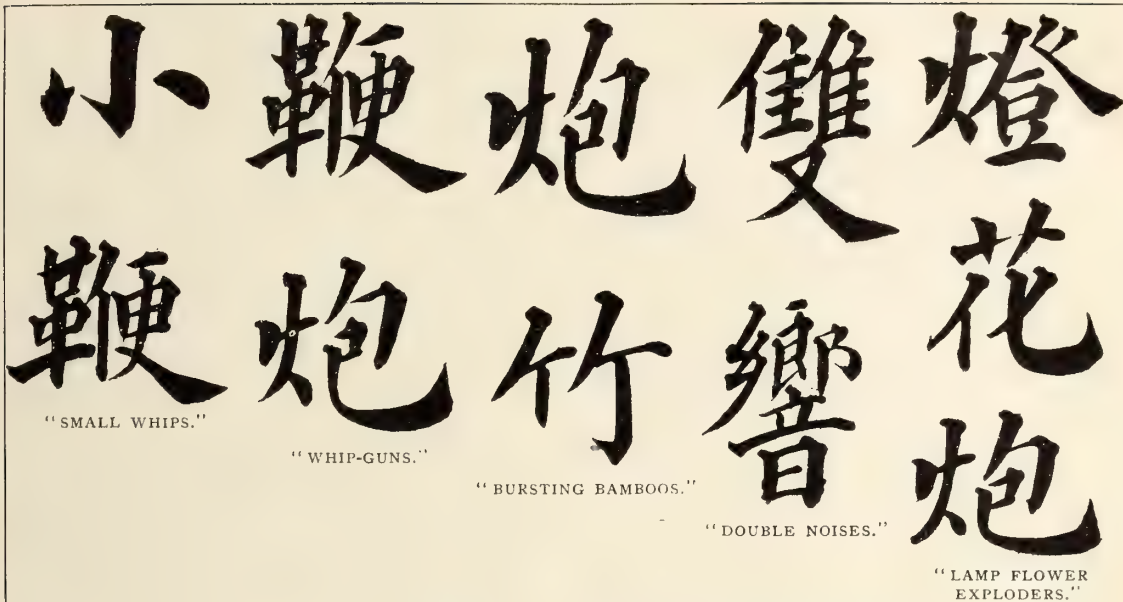 小鞭
"SMALL WHIPS."
鞭炮
"WHIP-GUNS."
炮竹
"BURSTING BAMBOOS."
雙響
"DOUBLE NOISES."
燈花炮
"LAMP FLOWER
EXPLODERS."